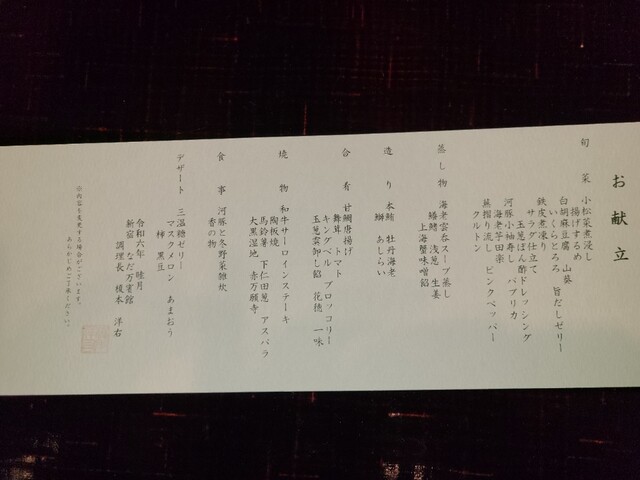 お献立
旬菜 小松菜煮浸し
揚げするめ
白胡麻豆腐 山葵
いくらとろろ 旨だしゼリー
鉄皮煮凍り
サラダ仕立て
玉葱ぽん酢ドレッシング
河豚小袖寿し パプリカ
海老芋田楽
蕪摺り流し ピンクペッパー
クルトン
蒸し物 海老雲呑スープ蒸し
鱶鰭 浅葱 生姜
上海蟹味噌餡
造り 本鮪 牡丹海老
鰤 あしらい
合肴 甘鯛唐揚げ
舞茸 トマト
キングベル ブロッコリー
玉葱霙卸し餡 花穂 一味
焼物 和牛サーロインステーキ
陶板焼
馬鈴薯 下仁田葱 アスパラ
大黒湿地 赤万願寺
食事 河豚と冬野菜雑炊
香の物
デザート 三温糖ゼリー
マスクメロン あまおう
柿 黒豆
令和六年 睦月
新宿 なだ万賓館
調理長 榎本 洋右
※内容を変更する場合がございます。
あらかじめご了承ください。